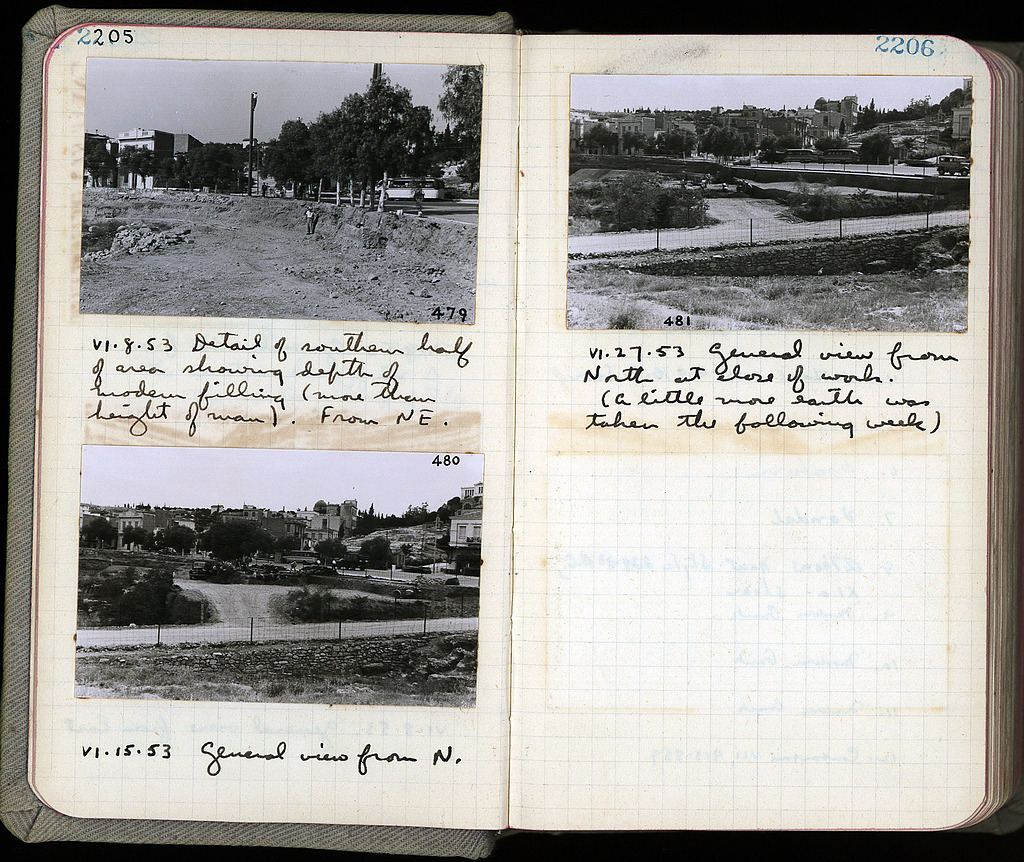 2205
479
VI.8.53 Detail of southern half
of area showing depth of
modern filling (more than
height of man). From NE.
480
VI.15.53 General view from N.
2206
481
VI.27.53 General view from
North at close of work.
(a little more earth was
taken the following week)